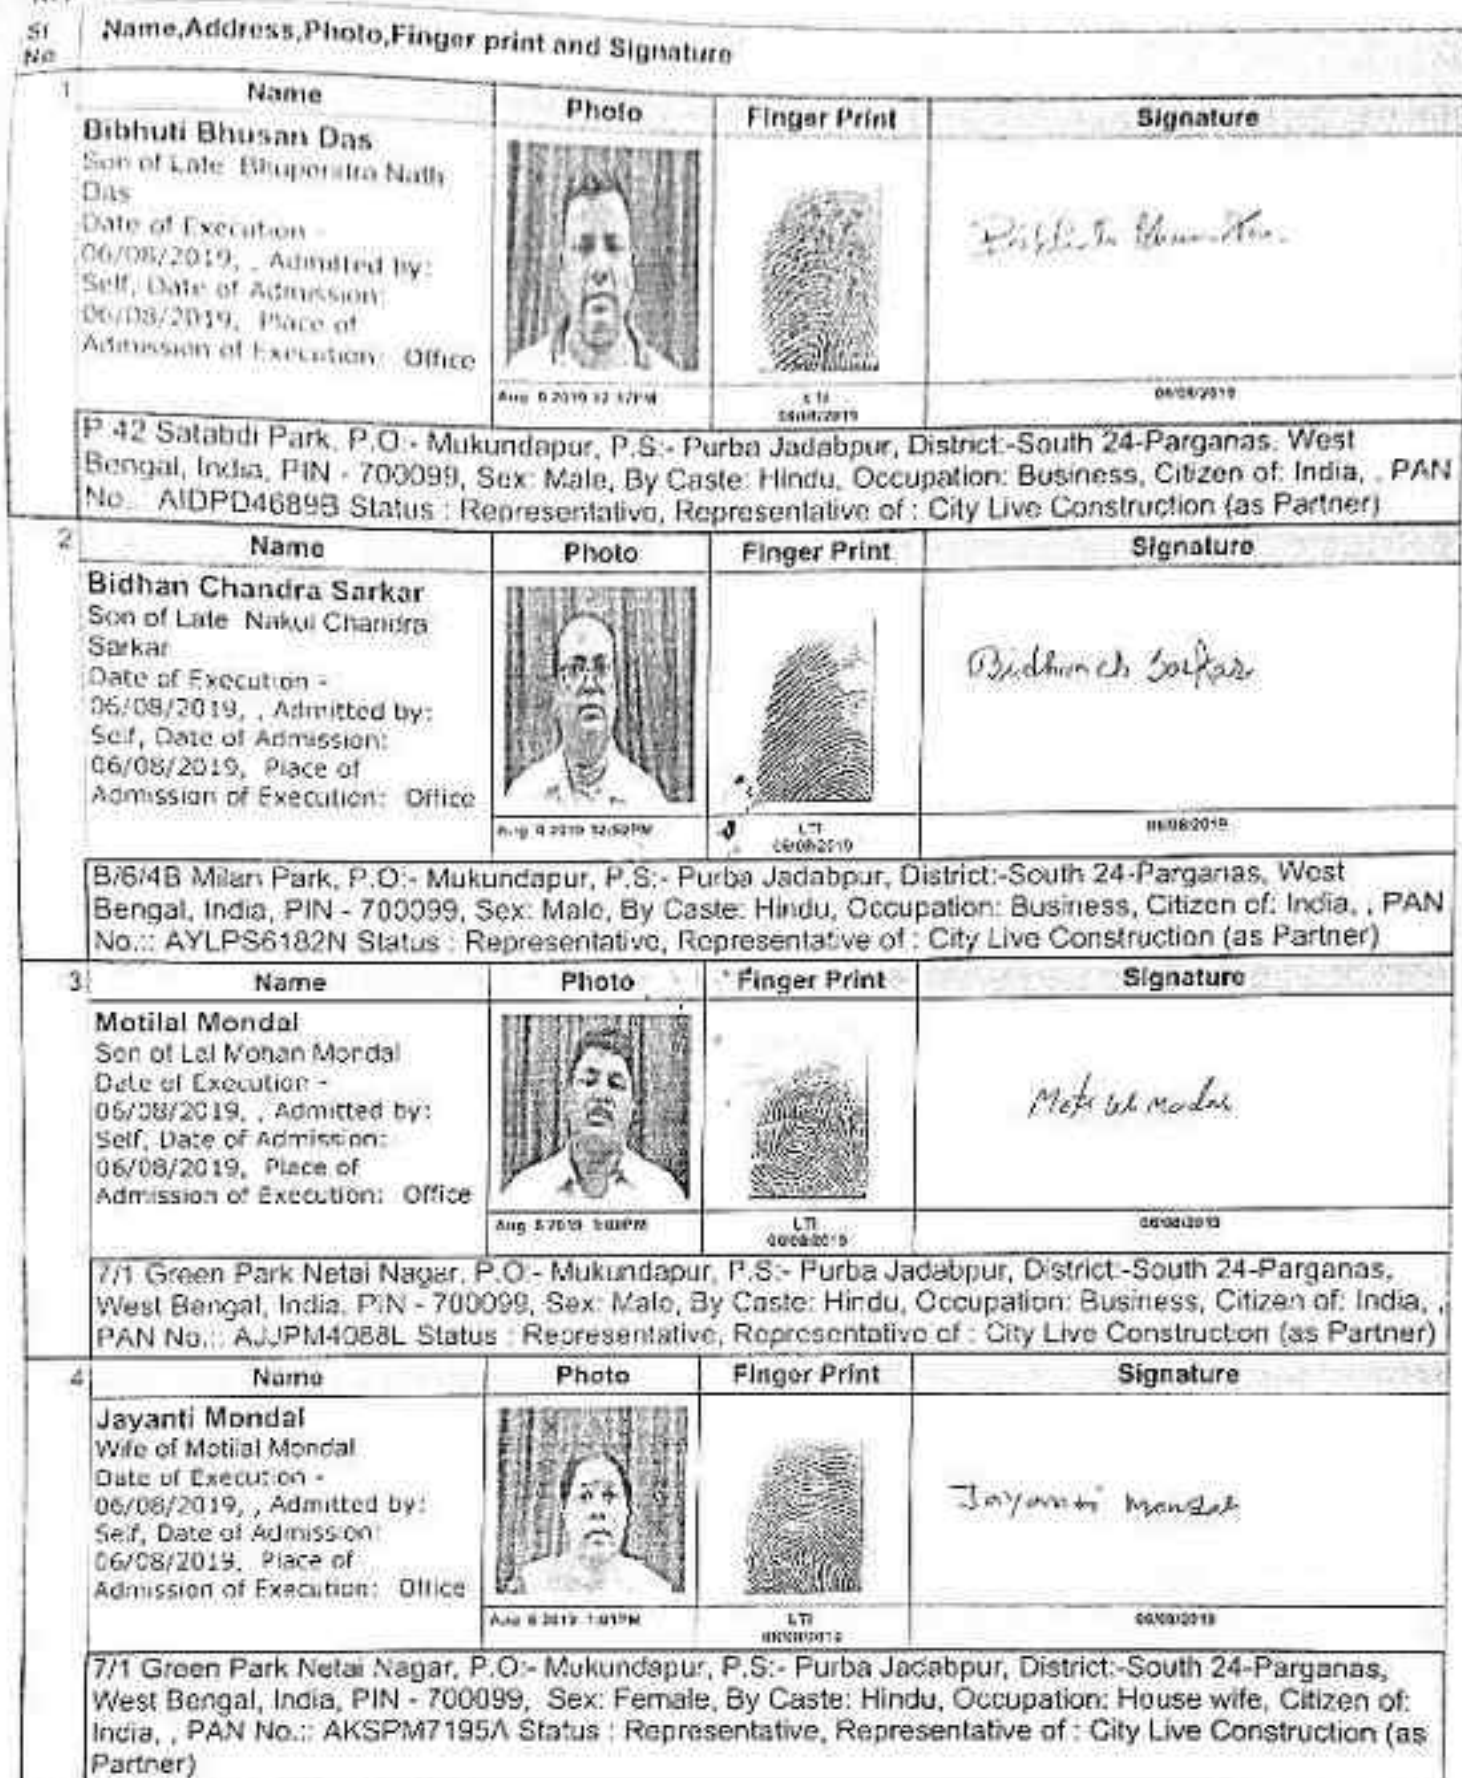 Sl No
Name,Address,Photo,Finger print and Signature
1
Name
Photo
Finger Print
Signature
Bibhuti Bhusan Das
Son of Late Bhupendra Nath
Das
Date of Execution -
06/08/2019, , Admitted by:
Self, Date of Admission:
06/08/2019, Place of
Admission of Execution: Office
06/08/2019
P 42 Satabdi Park, P.O:- Mukundapur, P.S:- Purba Jadabpur, District:-South 24-Parganas, West
Bengal, India, PIN - 700099, Sex: Male, By Caste: Hindu, Occupation: Business, Citizen of: India, , PAN
No.:: AIDPD4689B Status : Representative, Representative of : City Live Construction (as Partner)
2
Name
Photo
Finger Print
Signature
Bidhan Chandra Sarkar
Son of Late Nakul Chandra
Sarkar
Date of Execution -
06/08/2019, , Admitted by:
Self, Date of Admission:
06/08/2019, Place of
Admission of Execution: Office
Bidhan ch Sarkar
LTI
06/08/2019
06/08/2019
B/6/4B Milan Park, P.O:- Mukundapur, P.S:- Purba Jadabpur, District:-South 24-Parganas, West
Bengal, India, PIN - 700099, Sex: Male, By Caste: Hindu, Occupation: Business, Citizen of: India, , PAN
No.:: AYLPS6182N Status : Representative, Representative of : City Live Construction (as Partner)
3
Name
Photo
Finger Print
Signature
Motilal Mondal
Son of Lal Mohan Mondal
Date of Execution -
06/08/2019, , Admitted by:
Self, Date of Admission:
06/08/2019, Place of
Admission of Execution: Office
LTI
06/08/2019
06/08/2019
7/1 Green Park Netai Nagar, P.O:- Mukundapur, P.S:- Purba Jadabpur, District:-South 24-Parganas,
West Bengal, India, PIN - 700099, Sex: Male, By Caste: Hindu, Occupation: Business, Citizen of: India, ,
PAN No.:: AJJPM4088L Status : Representative, Representative of : City Live Construction (as Partner)
4
Name
Photo
Finger Print
Signature
Jayanti Mondal
Wife of Motilal Mondal
Date of Execution -
06/08/2019, , Admitted by:
Self, Date of Admission:
06/08/2019, Place of
Admission of Execution: Office
Jayanti Mondal
Aug 6 2019 1:01PM
LTI
06/08/2019
06/08/2019
7/1 Green Park Netai Nagar, P.O:- Mukundapur, P.S:- Purba Jadabpur, District:-South 24-Parganas,
West Bengal, India, PIN - 700099, Sex: Female, By Caste: Hindu, Occupation: House wife, Citizen of:
India, , PAN No.:: AKSPM7195A Status : Representative, Representative of : City Live Construction (as
Partner)